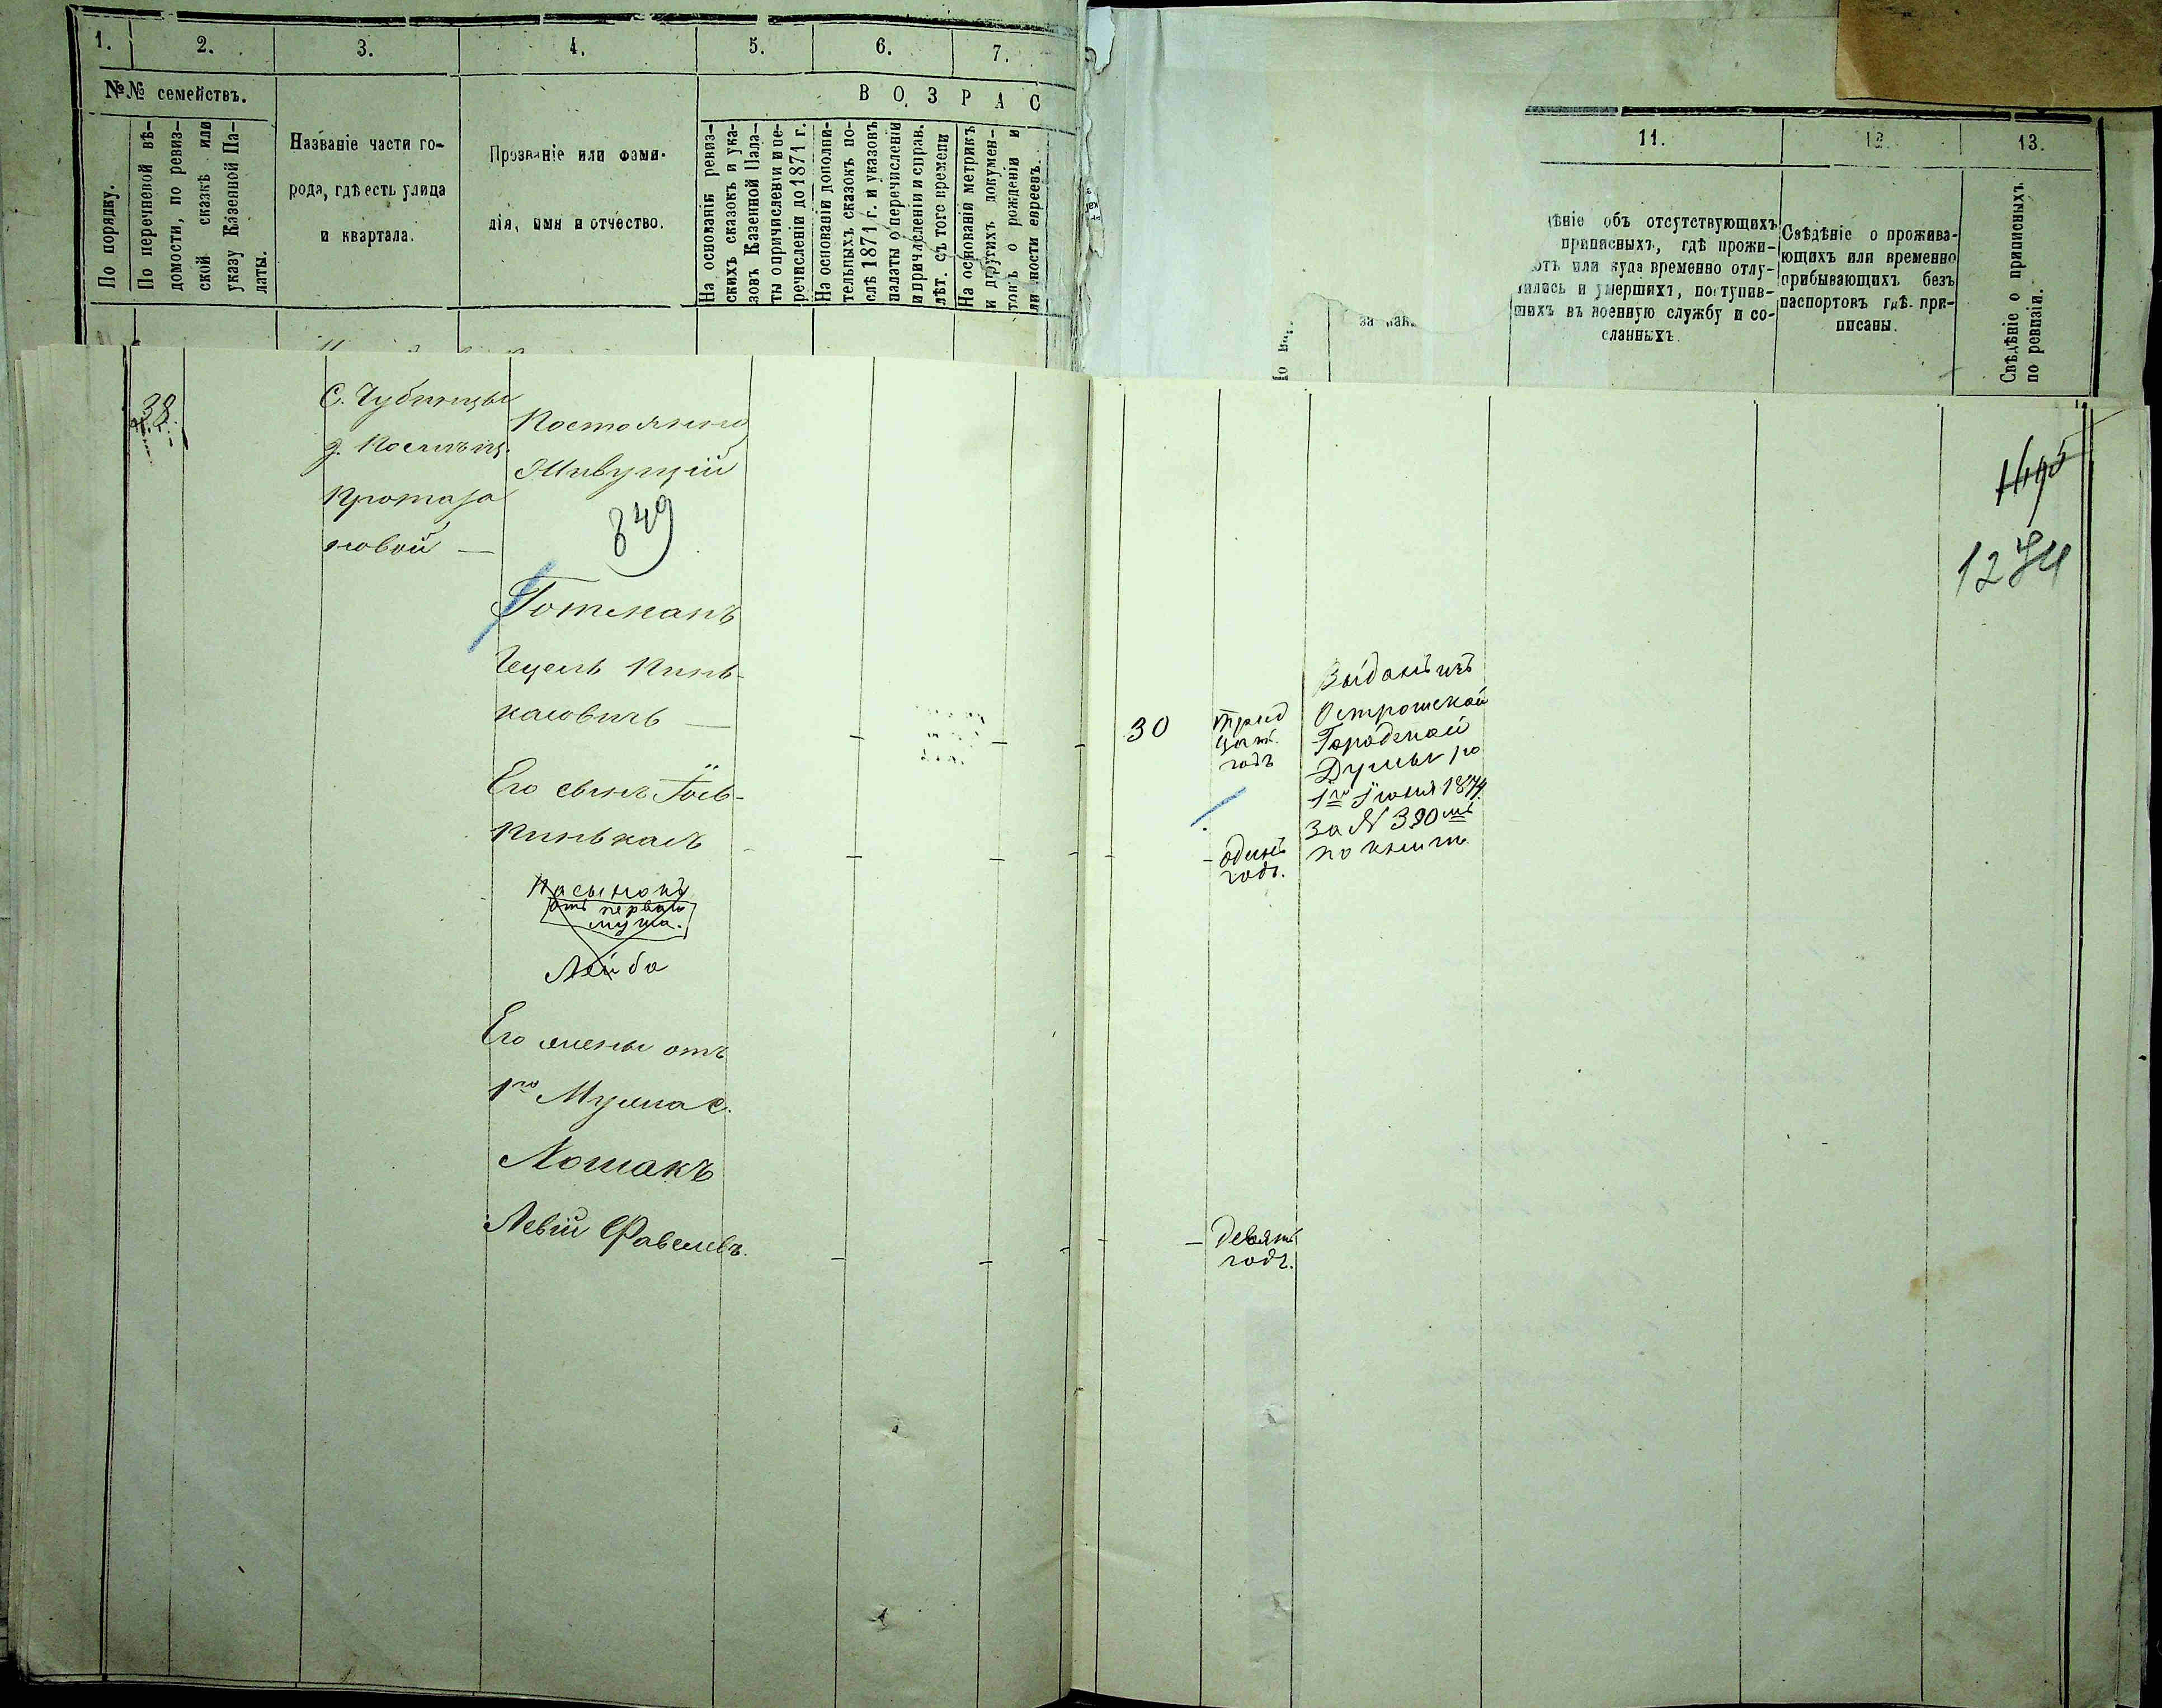 1.
2.
3.
4.
5.
6.
7.
№№ семействъ.
В О З Р А С
По порядку.
По перечневой вѣ-
домости, по ревиз-
ской сказкѣ или
указу Казенной Па-
латы.
Названіе части го-
рода, гдѣ есть улица
и квартала.
Прозваніе или фами-
лія, имя и отчество.
На основаніи ревиз-
скихъ сказокъ и ука-
зовъ Казенной Пала-
ты о причисленіи и пе-
речисленіи до 1871 г.
На основаніи дополни-
тельныхъ сказокъ по-
слѣ 1871 г. и указовъ
палаты о перечисленіи
и причисленіи и справ.
лѣт. съ того времени
На основаніи метрикъ
и другихъ докумен-
товъ о рожденіи и
личности евреевъ.
11.
12.
13.
за как
ѣніе объ отсутствующихъ
приписныхъ, гдѣ прожи-
ютъ или куда временно отлу-
чились и умершихъ, поступив-
шихъ въ военную службу и со-
сланныхъ.
Свѣдѣніе о прожива-
ющихъ или временно
прибывающихъ безъ
паспортовъ гдѣ при-
писаны.
Свѣдѣніе о приписныхъ
по ревизіи.
38.
С. Чубинцы
Протаза
новой —
Постоянно
Живущій
849
Готманъ
Гецель Пинь-
касовичъ —
Его сынъ Іось-
Пинькасъ
Пасынокъ
отъ перваго
мужа.
Лейба
Его жены отъ
1го Мужа с.
Хошакъ
Левій Фавелевъ.
30
трид
цать
годъ
один
годъ.
Девять
годъ.
Выданъ изъ
Острожской
Городской
Думы
1го Іюня 1874
за № 390мъ
по книгѣ
1274